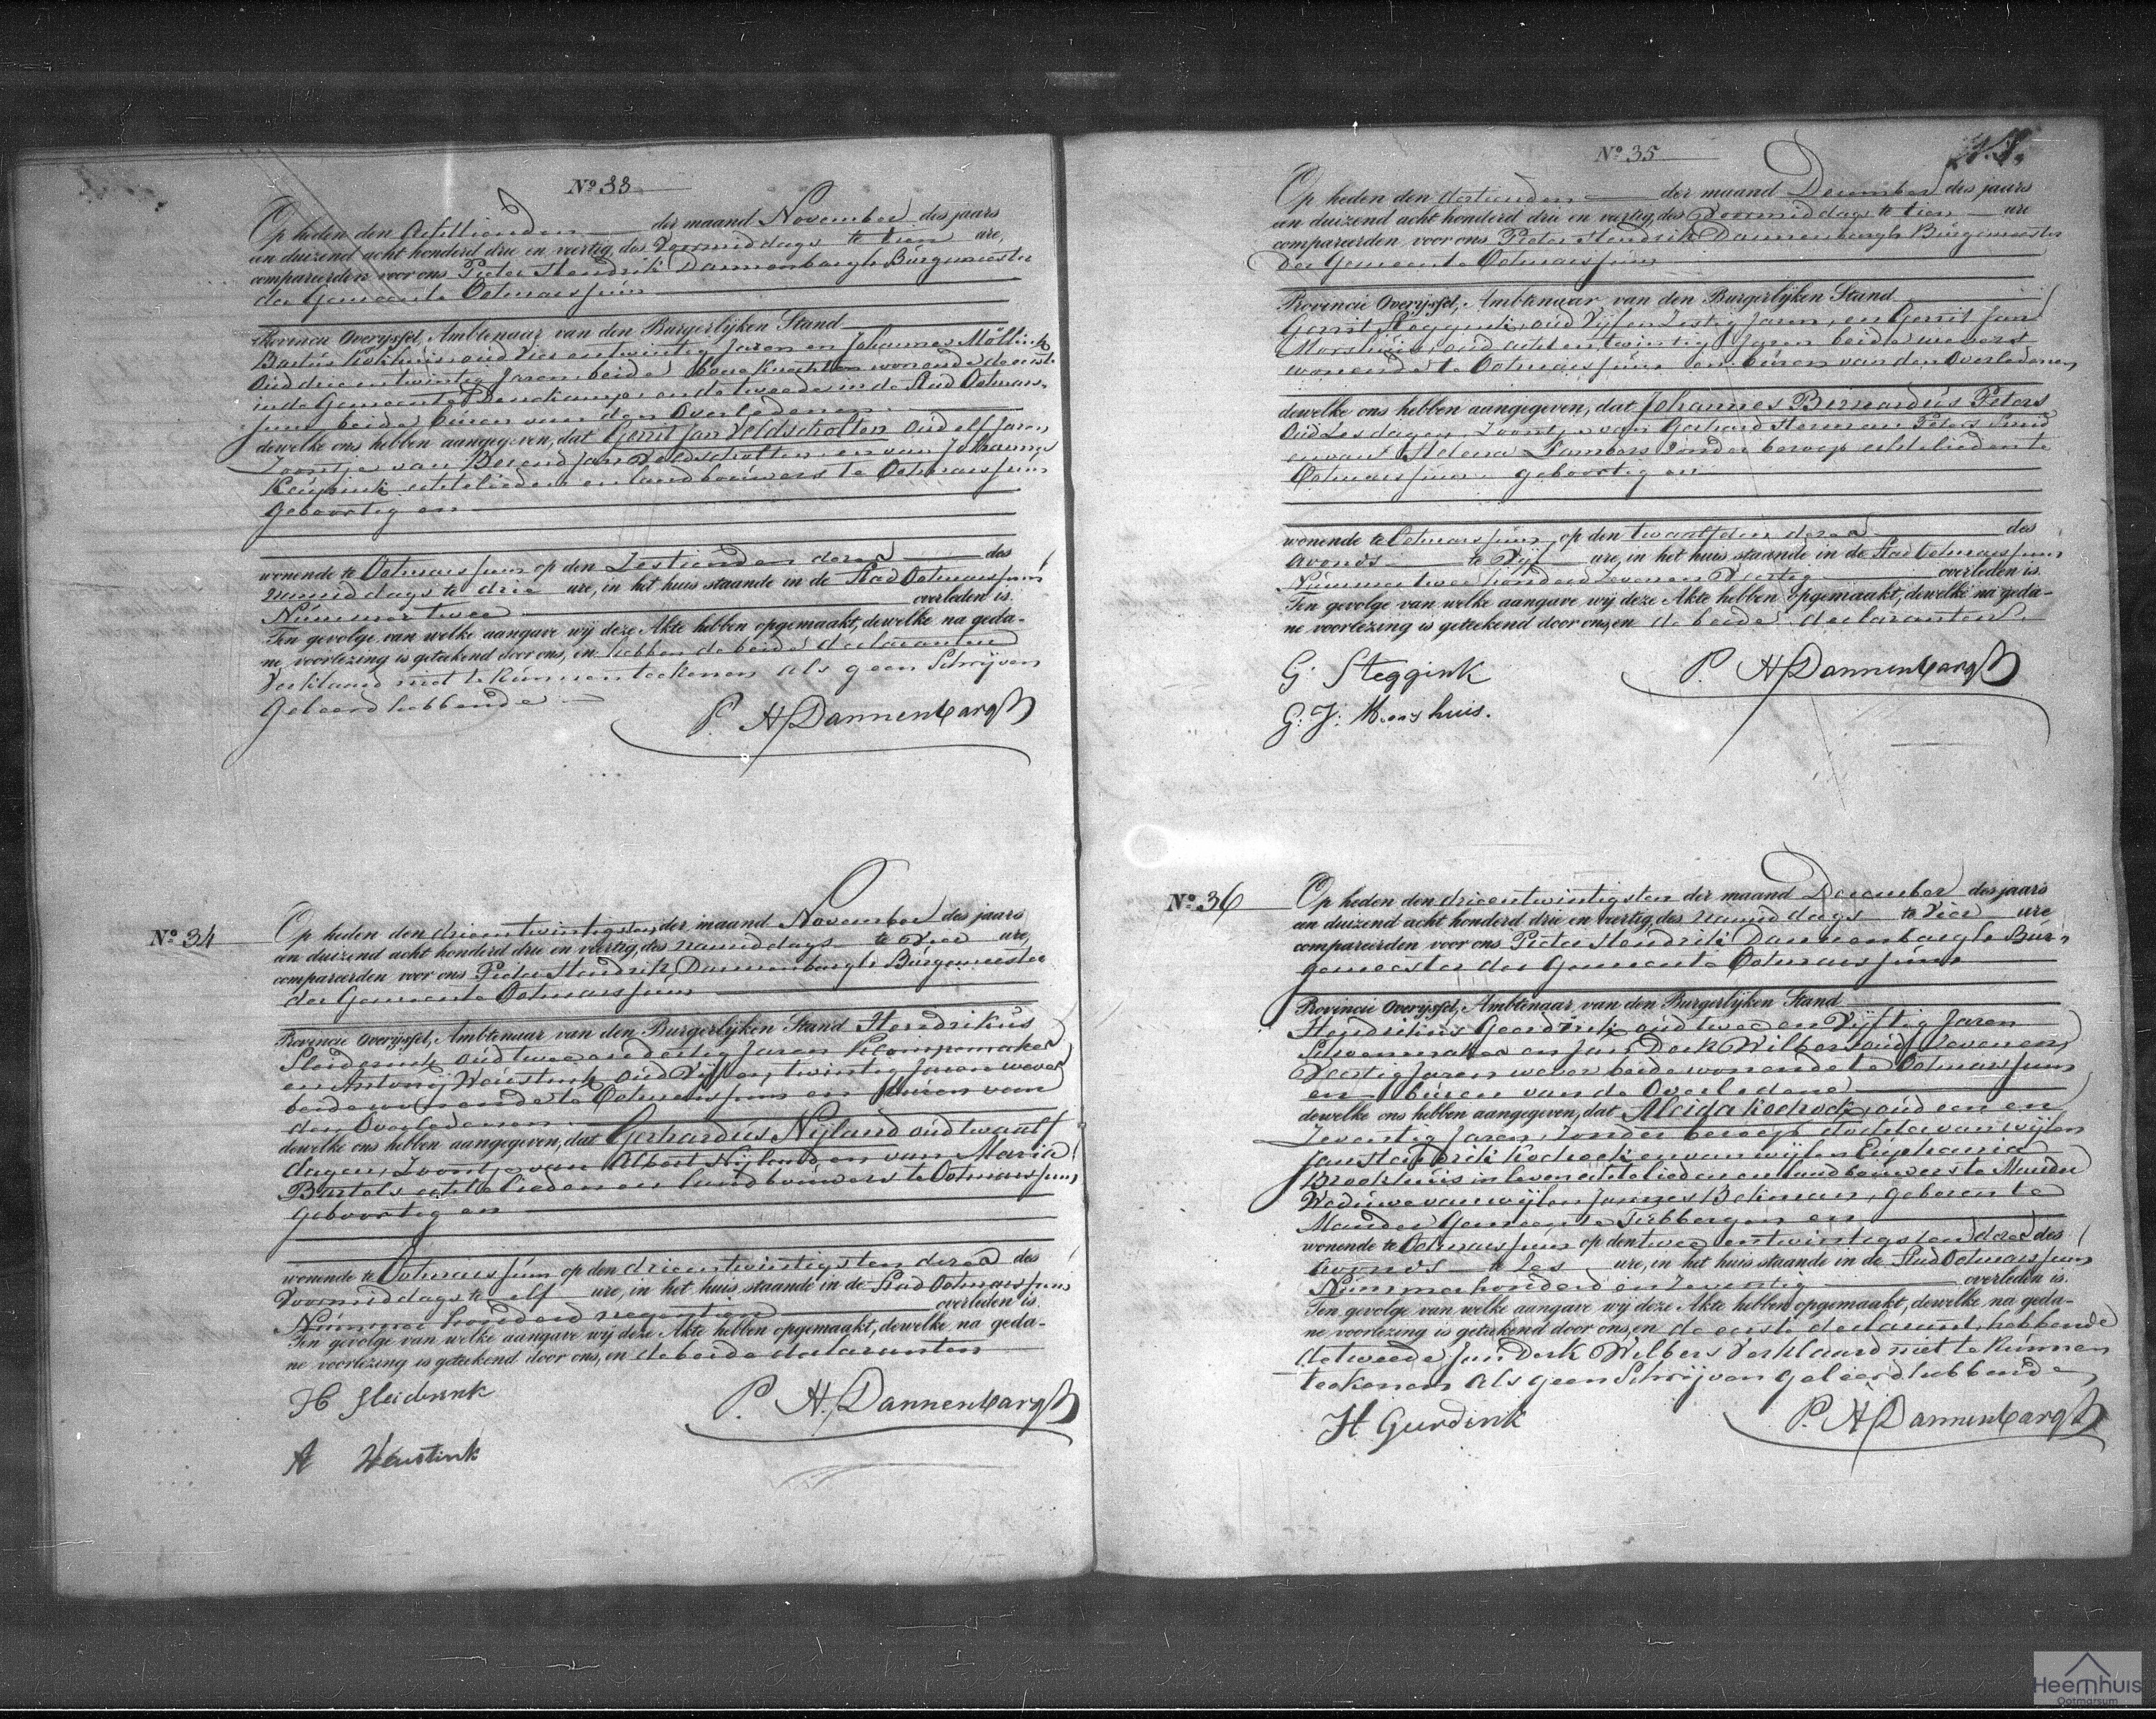 Nº 33
Op heden den Achttienden der maand November des jaars
een duizend acht honderd drie en veertig, des Voormiddags te tien ure,
compareerden voor ons Pieter Hendrik Dannenbargh Burgemeester
der Gemeente Ootmarssum
Provincie Overijssel, Ambtenaar van den Burgerlijken Stand
Bartus oud Vier entwintig Jaren en Johannes Möllink
oud drie entwintig Jaren beide Bouwknechten wonende de eerste
in de Gemeente Denekamp en de tweede in de Stad Ootmars-
sum beide buren van den Overledenen
dewelke ons hebben aangegeven, dat Gerrit Jan Veldscholten oud elf Jaren
Zoontje van Berend Jan Veldscholten en van Johanna
echtelieden en landbouwers te Ootmarssum
geboortig en
wonende te Ootmarssum op den Zestienden dezer des
namiddags te drie ure, in het huis staande in de Stad Ootmarssum
Nummer twee overleden is.
Ten gevolge van welke aangave wij deze Akte hebben opgemaakt, dewelke na geda-
ne voorlezing is geteekend door ons, en hebben de beide declaranten
Verklaard niet te kunnen teekenen als geen Schrijven
geleerd hebbende
P. H. Dannenbargh
Nº 34
Op heden den drieentwintigsten der maand November des jaars
een duizend acht honderd drie en veertig, des namiddags te Vier ure,
compareerden voor ons Pieter Hendrik Dannenbargh Burgemeester
der Gemeente Ootmarssum
Provincie Overijssel, Ambtenaar van den Burgerlijken Stand Hendrikus
Sleiderink oud twee en dertig Jaren Klompemaker
en Antonij Weustink oud Vijf en twintig Jaren wever
beide wonende te Ootmarssum en buren van
den Overledenen
dewelke ons hebben aangegeven, dat Gerhardus Nijland oud twaalf
dagen, Zoontje van Albert Nijland en van Maria
Bartels echtelieden en landbouwers te Ootmarssum
geboortig en
wonende te Ootmarssum op den drieentwintigsten dezer des
Voormiddags te elf ure, in het huis staande in de Stad Ootmarssum
Nummer honderd negentien overleden is.
Ten gevolge van welke aangave wij deze Akte hebben opgemaakt, dewelke na geda-
ne voorlezing is geteekend door ons, en de beide declaranten
H Sleiderink
P. H. Dannenbargh
A Weustink
Nº 35
Op heden den dertienden der maand December des jaars
een duizend acht honderd drie en veertig, des Voormiddags te tien ure
compareerden voor ons Pieter Hendrik Dannenbargh Burgemeester
der Gemeente Ootmarssum
Provincie Overijssel, Ambtenaar van den Burgerlijken Stand
Gerrit Steggink, oud Vijf en Zestig Jaren, en Gerrit Jan
Morshuis, oud achtentwintig Jaren beide wevers
wonende te Ootmarssum en buren van den Overledenen
dewelke ons hebben aangegeven, dat Johannes Bernardus Peters
oud Zes dagen, Zoontje van Gerhard Herman Peters Smid
en van Aldena Lambers Zonder beroep echtelieden te
Ootmarssum geboortig en
wonende te Ootmarssum, op den twaalfden dezer des
avonds te Vijf ure, in het huis staande in de Stad Ootmarssum
Nummer twee honderd Zeven en Veertig overleden is.
Ten gevolge van welke aangave wij deze Akte hebben opgemaakt, dewelke na geda-
ne voorlezing is geteekend door ons, en de beide declaranten
G. Steggink
P. H. Dannenbargh
G: J: Morshuis.
Nº 36
Op heden den drieentwintigsten der maand December des jaars
een duizend acht honderd drie en veertig, des namiddags te Vier ure
compareerden voor ons Pieter Hendrik Dannenbargh Bur-
gemeester der Gemeente Ootmarssum
Provincie Overijssel, Ambtenaar van den Burgerlijken Stand
Hendrikus Geerdink oud twee en Vijftig Jaren
Schoenmaker en Jan Derk Wilbers oud Zeven en
Veertig Jaren wever beide wonende te Ootmarssum
en buren van de Overledene
dewelke ons hebben aangegeven, dat Aleida oud een en
Zeventig Jaren, Zonder beroep dochter van wijlen
Jan Hendrik en van wijlen Euphamia
Broekhuis in leven echtelieden en landbouwers te Mander
Weduwe van wijlen Jannes Bekman, geboren te
Mander Gemeente Tubbergen en
wonende te Ootmarssum op den twee entwintigsten dezer des
avonds te Zes ure, in het huis staande in de Stad Ootmarssum
Nummer honderd en Zeventig overleden is.
Ten gevolge van welke aangave wij deze Akte hebben opgemaakt, dewelke na geda-
ne voorlezing is geteekend door ons, en de eerste declarant, hebbende
de tweede Jan Derk Wilbers Verklaard niet te kunnen
teekenen als geen Schrijven geleerd hebbende
P. H. Dannenbargh
H Geerdink
Heemhuis
Ootmarsum